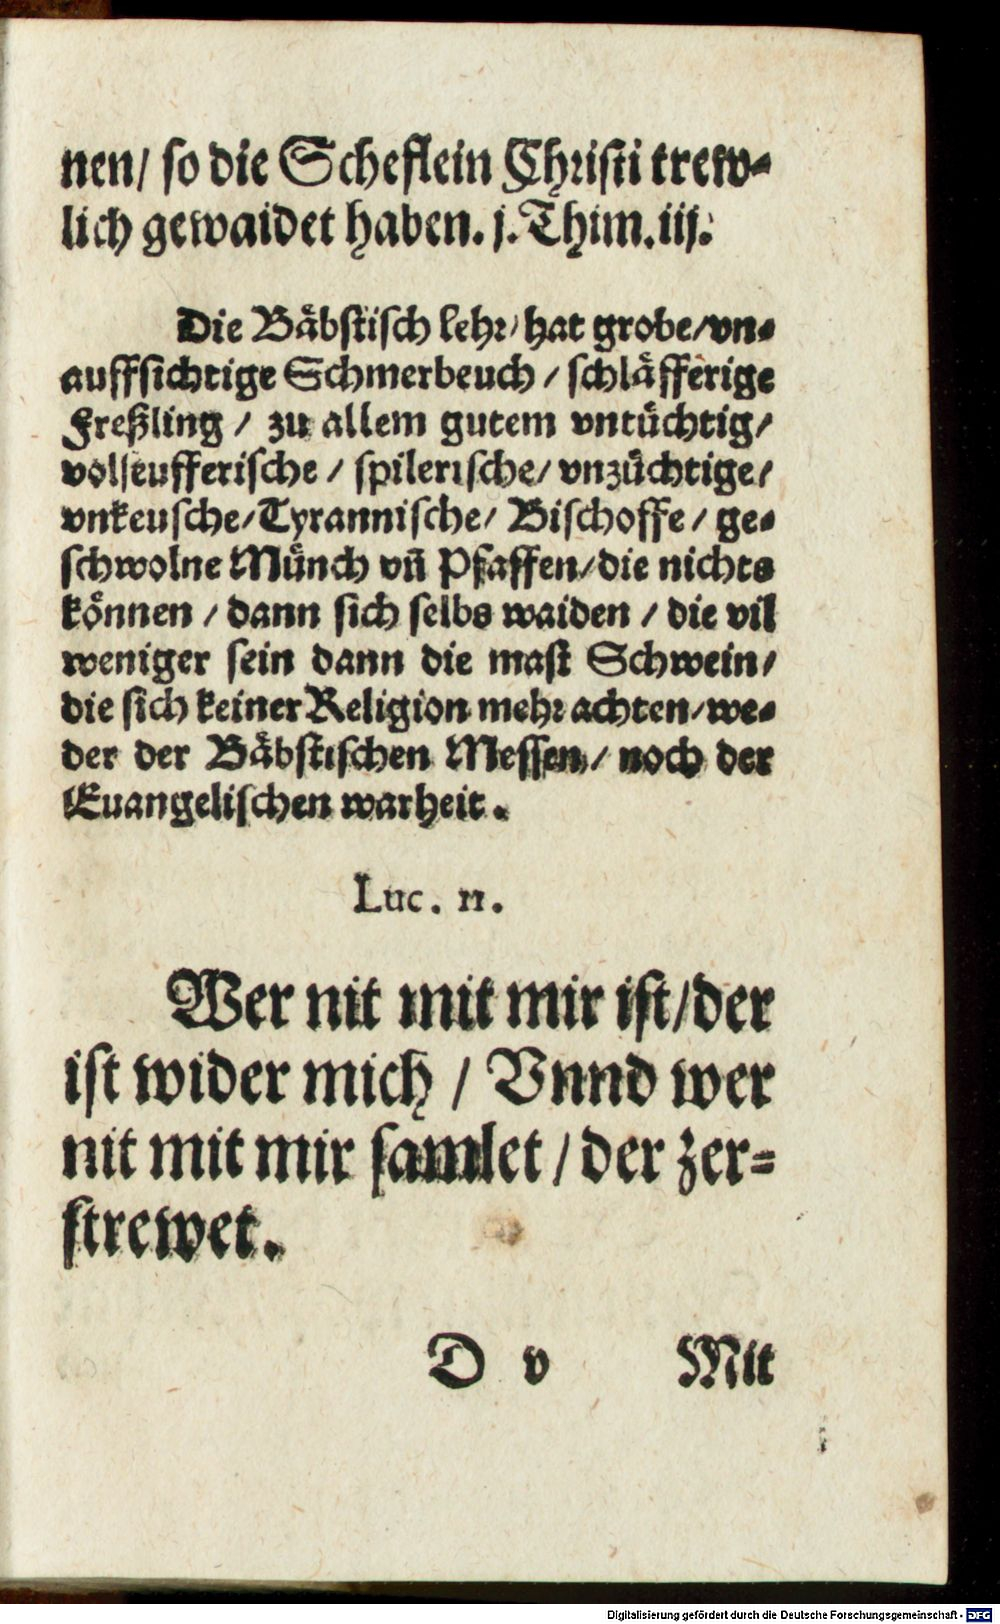 nen/ so die Scheflein Christi trew-
lich gewaidet haben. j. Thim. iij.
Die Bäbstisch lehr/ hat grobe/ vn-
auffsichtige Schmerbeuch / schläfferige
Freßling / zu allem gutem vntüchtig/
volseufferische / spilerische/ vnzüchtige/
vnkeusche/ Tyrannische/ Bischoffe / ge-
schwolne Münch vñ Pfaffen/ die nichts
können / dann sich selbs waiden / die vil
weniger sein dann die mast Schwein/
die sich keiner Religion mehr achten/ we-
der der Bäbstischen Messen/ noch der
Euangelischen warheit.
Luc. 11.
Wer nit mit mir ist/ der
ist wider mich / Vnnd wer
nit mit mir samlet / der zer-
strewet.
D v Mit
Digitalisierung gefördert durch die Deutsche Forschungsgemeinschaft - DFG